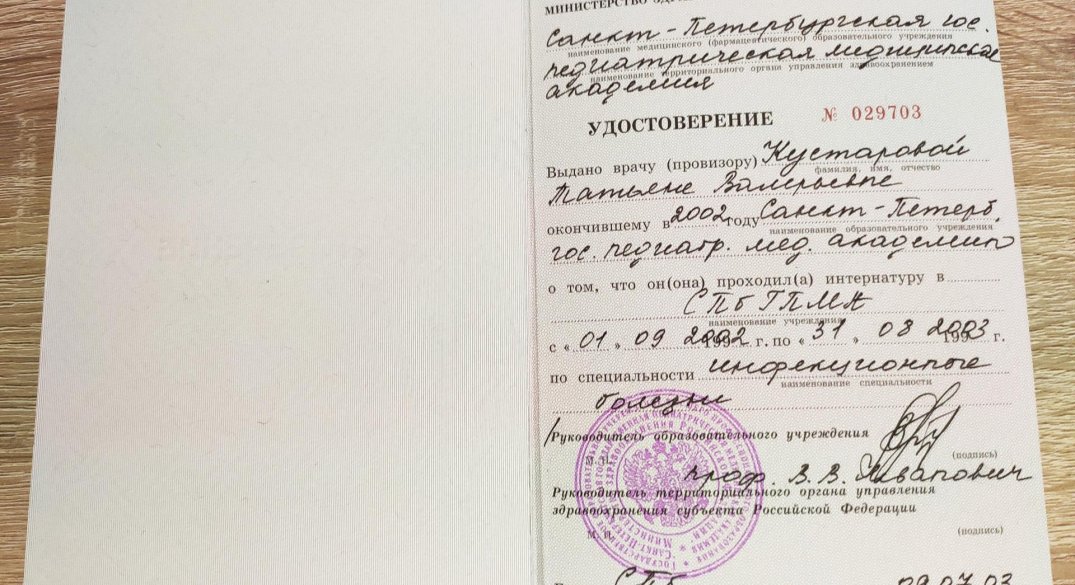 МИНИСТЕРСТВО
Санкт-Петербургская гос.
наименование медицинского (фармацевтического) образовательного учреждения
педиатрическая медицинская
наименование территориального органа управления здравоохранением
академия
УДОСТОВЕРЕНИЕ № 029703
Выдано врачу (провизору) Кустаровой
фамилия, имя, отчество
Татьяне Валерьевне
окончившему в 2002 году Санкт-Петерб.
наименование образовательного учреждения
гос. педиатр. мед. академию
о том, что он(она) проходил(а) интернатуру в
СПбГПМА
наименование учреждения
с «01» 09 2002 199 г. по «31» 08 2003 199 г.
по специальности инфекционные
наименование специальности
болезни
Руководитель образовательного учреждения
(подпись)
М. П.
проф. В. В. Леванович
Руководитель территориального органа управления
здравоохранения субъекта Российской Федерации
(подпись)
М. П.
СПб 09.07.03